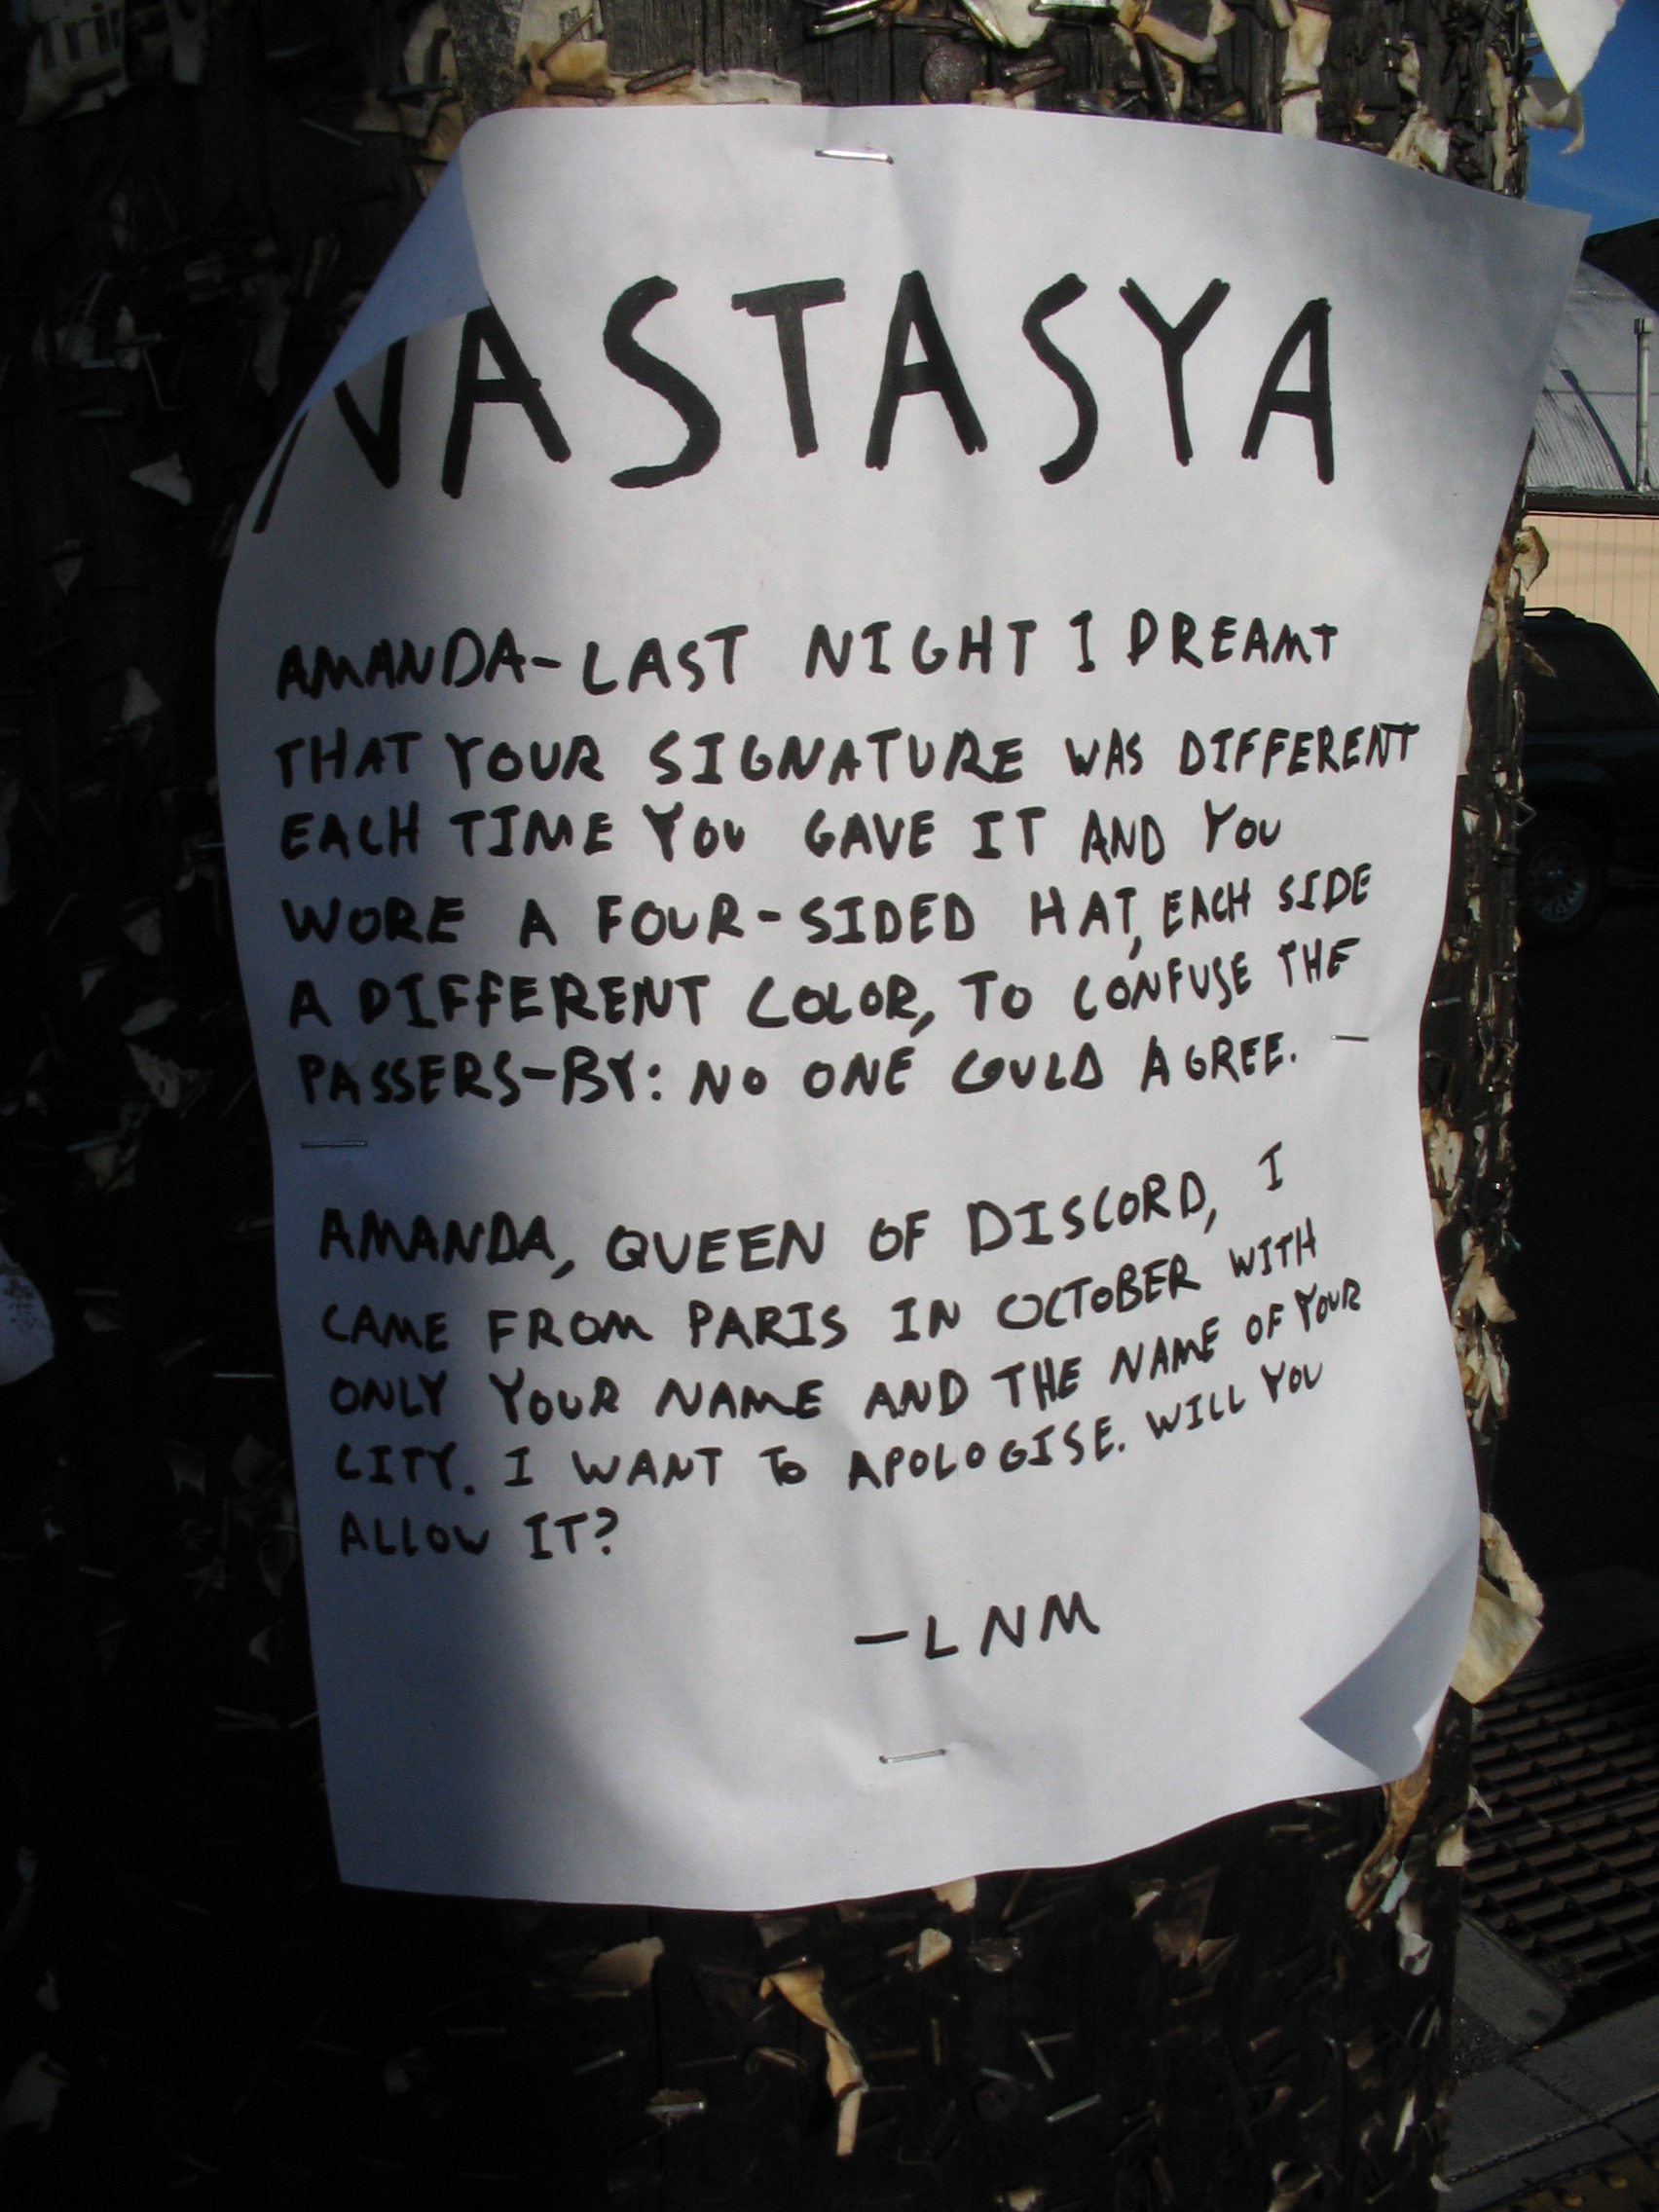 NASTASYA
AMANDA-LAST NIGHT I DREAMT
THAT YOUR SIGNATURE WAS DIFFERENT
EACH TIME YOU GAVE IT AND YOU
WORE A FOUR-SIDED HAT, EACH SIDE
A DIFFERENT COLOR, TO CONFUSE THE
PASSERS-BY: NO ONE COULD AGREE.
AMANDA, QUEEN OF DISCORD, I
CAME FROM PARIS IN OCTOBER WITH
ONLY YOUR NAME AND THE NAME OF YOUR
CITY. I WANT TO APOLOGISE. WILL YOU
ALLOW IT?
-LNM